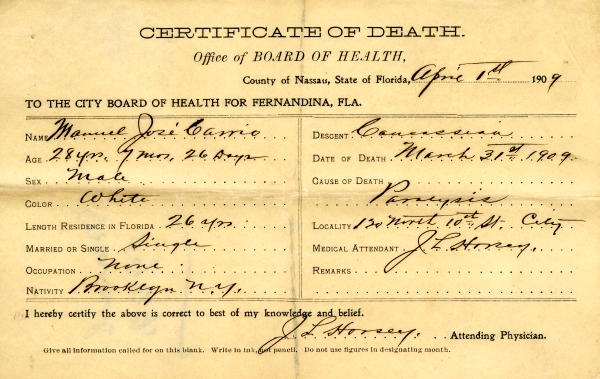 CERTIFICATE OF DEATH.
Office of BOARD OF HEALTH,
County of Nassau, State of Florida, April 1st 1909
TO THE CITY BOARD OF HEALTH FOR FERNANDINA, FLA.
NAME Manuel José Carrio
AGE 28 yrs. 7 mos. 26 Days
SEX Male
COLOR White
LENGTH RESIDENCE IN FLORIDA 26 yrs.
MARRIED OR SINGLE Single
OCCUPATION None
NATIVITY Brooklyn N.Y.
DESCENT Caucassian
DATE OF DEATH March 31st 1909
CAUSE OF DEATH
Paralysis
LOCALITY 120 North 10th St. City
MEDICAL ATTENDANT J L Horsey.
REMARKS
I hereby certify the above is correct to best of my knowledge and belief.
J L Horsey. Attending Physician.
Give all information called for on this blank. Write in ink, not pencil. Do not use figures in designating month.